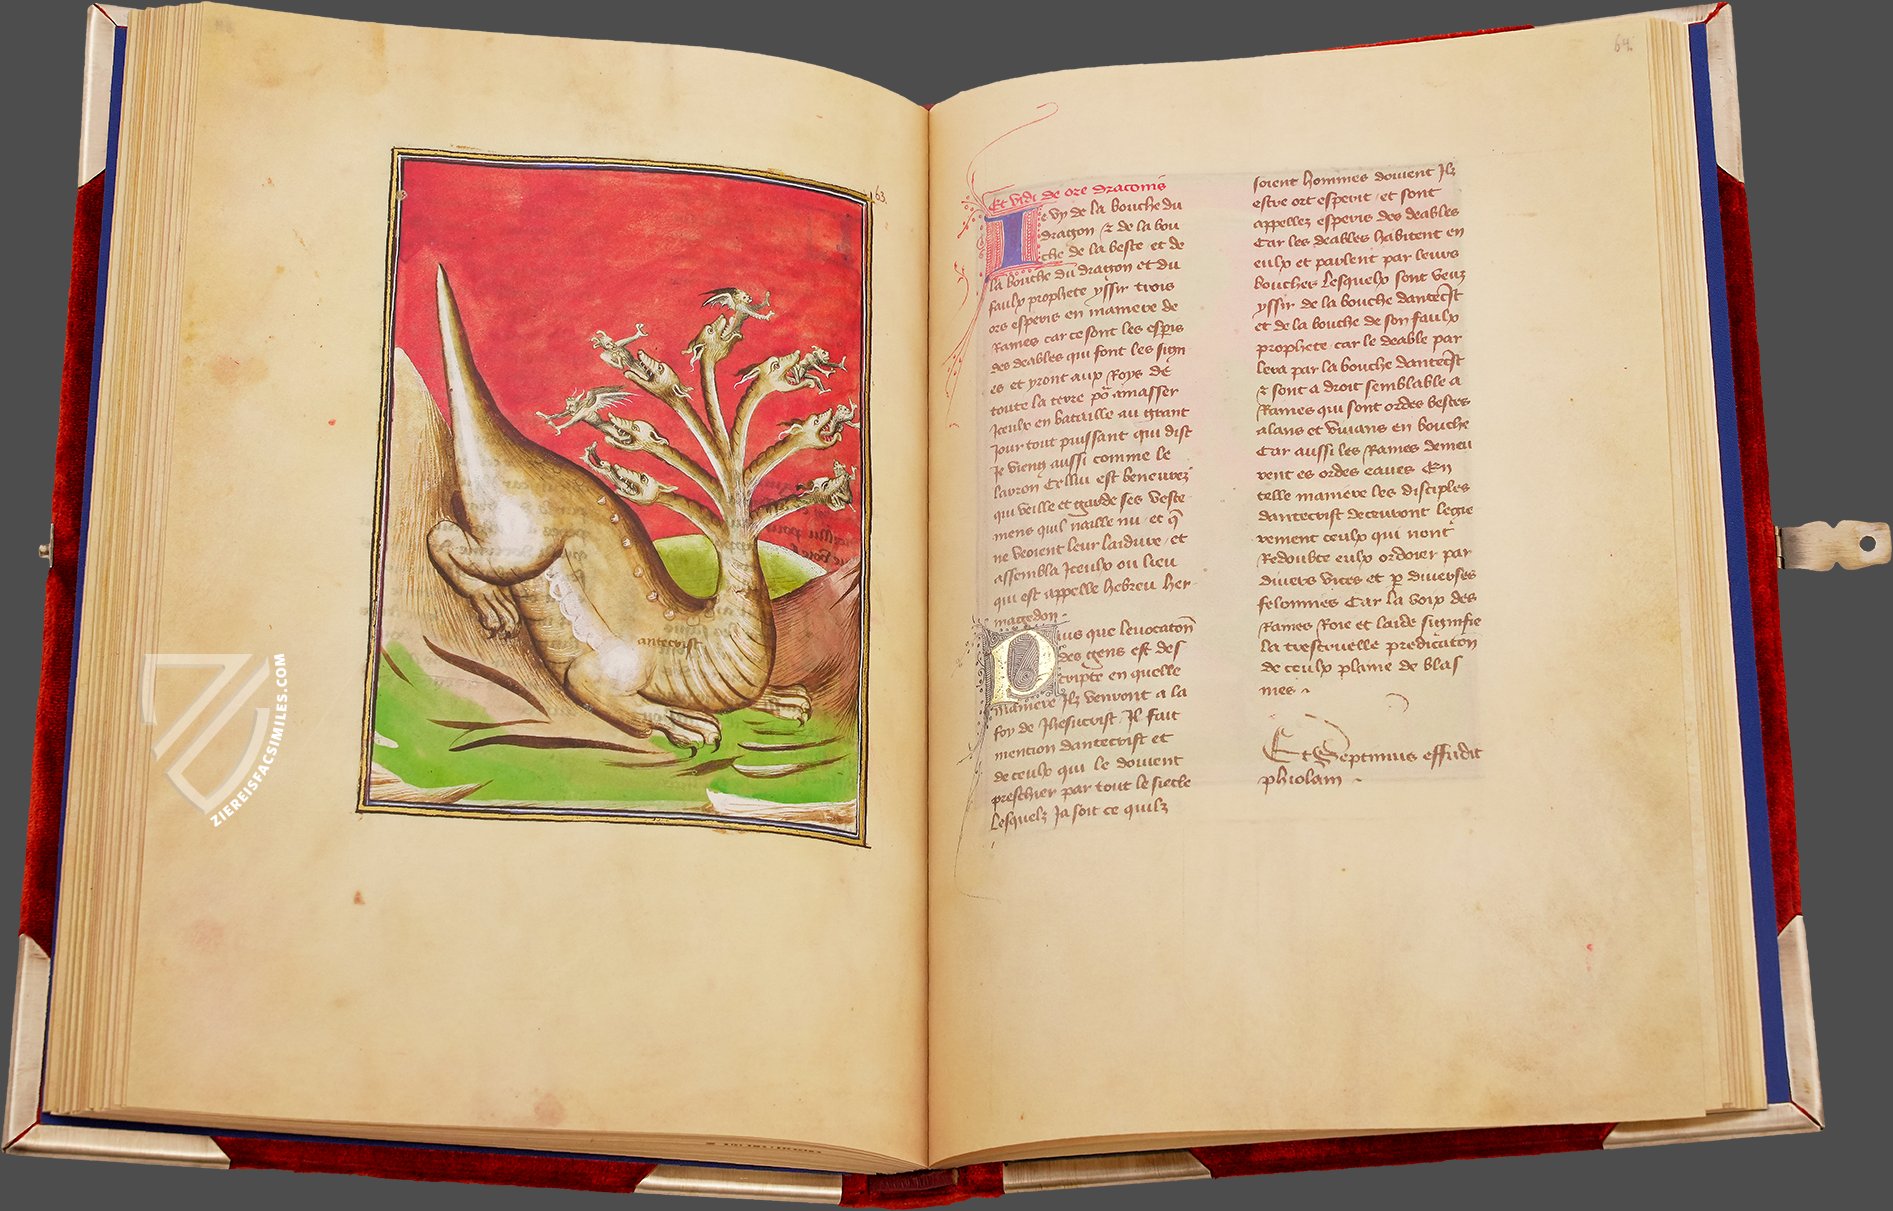 63.
antecrist
ZIEREISFACSIMILES.COM
64.
Et vidi de ore draconis
Ie vy de la bouche du
dragon & de la bou
che de la beste et de
la bouche du dragon et du
faulx prophete yssir trois
ors esperis en maniere de
Raines car ce sont les esperis
des deables qui font les sign
es et yront aux Roys de
toute la terre po amasser
Iceulx en bataille au grant
Jour tout puissant qui dist
Je vieng aussi comme le
larron Cellui est beneurez
qui veille et garde ses veste
mens quil naille nu et q
ne veoient leur laidure et
assembla Iceulx ou lieu
qui est appelle hebreu her
magedon
Puis que levocation
des gens est des
cripte en quelle
maniere Ilz venront a la
foy de Jhesucrist Il fait
mention dantecrist et
de ceulx qui le doivent
preschier par tout le siecle
Lesquelz Ja soit ce quilz
soient hommes doivent Ilz
estre ort esperit et sont
appellez esperis des deables
Car les deables habitent en
eulx et parlent par leurs
bouches Lesquelx sont veuz
yssir de la bouche dantecrist
et de la bouche de son faulx
prophete car le deable par
lera par la bouche dantecrist
& sont a droit semblable a
Raines qui sont ordes bestes
alans et vivans en bouche
Car aussi les Raines demeu
rent es ordes eaues En
telle maniere les disciples
dantecrist decevront legie
rement ceulx qui nont
Redoubte eulx ordoier par
divers vices et p diverses
felonnies Car la voix des
Raines Roie et laide signifie
la trescruelle predication
de ceulx plaine de blas
mes
Et Septimus effudit
phiolam